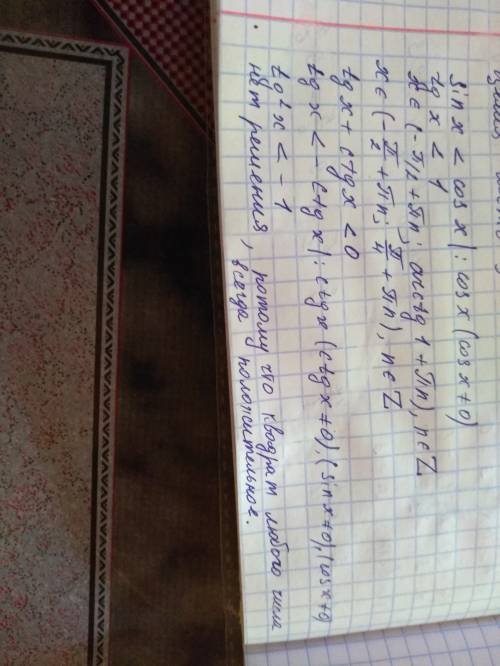 sin x < cos x | : cos x (cos x ≠ 0)
tg x < 1
x ∈ (-π/2 + πn; arctg 1 + πn), n ∈ Z
x ∈ (-π/2 + πn; π/4 + πn), n ∈ Z
tg x + ctg x < 0
tg x < - ctg x | : ctg x (ctg x ≠ 0), (sin x ≠ 0), (cos x ≠ 0)
tg² x < - 1
нет решения, потому что квадрат любого числа
всегда положительное.